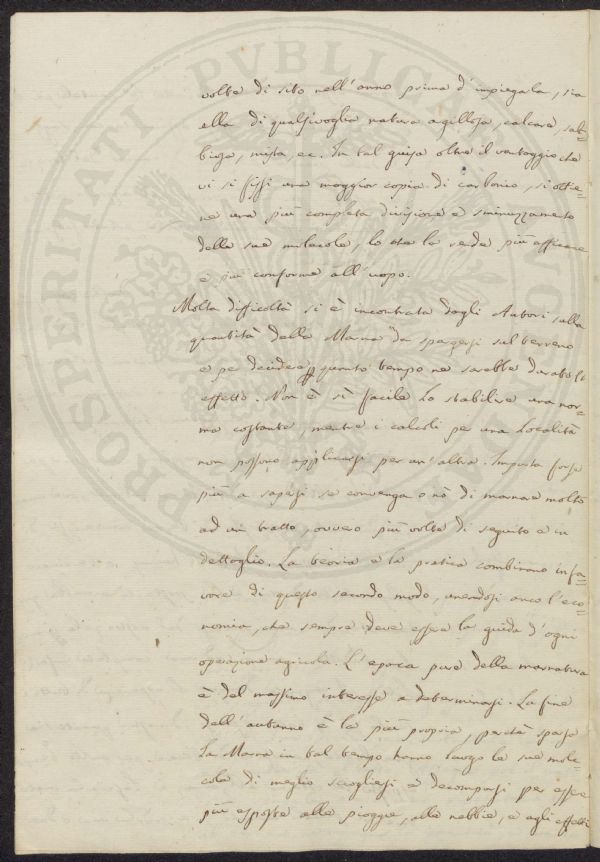 volte di sito nell'anno prima d'impiegarla, sia
ella di qualsivoglia natura argillosa, calcare, sab=
biosa, mista, ec. In tal guisa oltre il vantaggio che
vi si fissi una maggior copia di carbonio, si ottie=
ne una più completa divisione e sminuzzamento
delle sue molecole, lo che la rende più efficace
e più conforme all'uopo.
Molta difficoltà si è incontrata dagli Autori sulla
quantità della Marna da spargersi sul terreno
e per decidere quanto tempo ne sarebbe durato l'
effetto. Non è sì facile lo stabilire una nor=
ma costante, mentre i calcoli per una Località
non possono applicarsi per un'altra. Importa forse
più a sapersi se convenga o nò di marnare molto
ad un tratto, ovvero più volte di seguito e in
dettaglio. La teoria e la pratica combinano in fa=
vore di questo secondo modo, unendosi anco l'eco=
nomia, che sempre deve essere la guida d'ogni
operazione agricola. L'epoca pure della marnatura
è del massimo interesse a determinarsi. La fine
dell'autunno è la più propria, perchè sparsa
la Marna in tal tempo hanno luogo le sue mole=
cole di meglio sciogliersi e decomporsi per essere
più esposte alle piogge, alle nebbie, e agli effetti
PROSPERITATI PVBLICAE